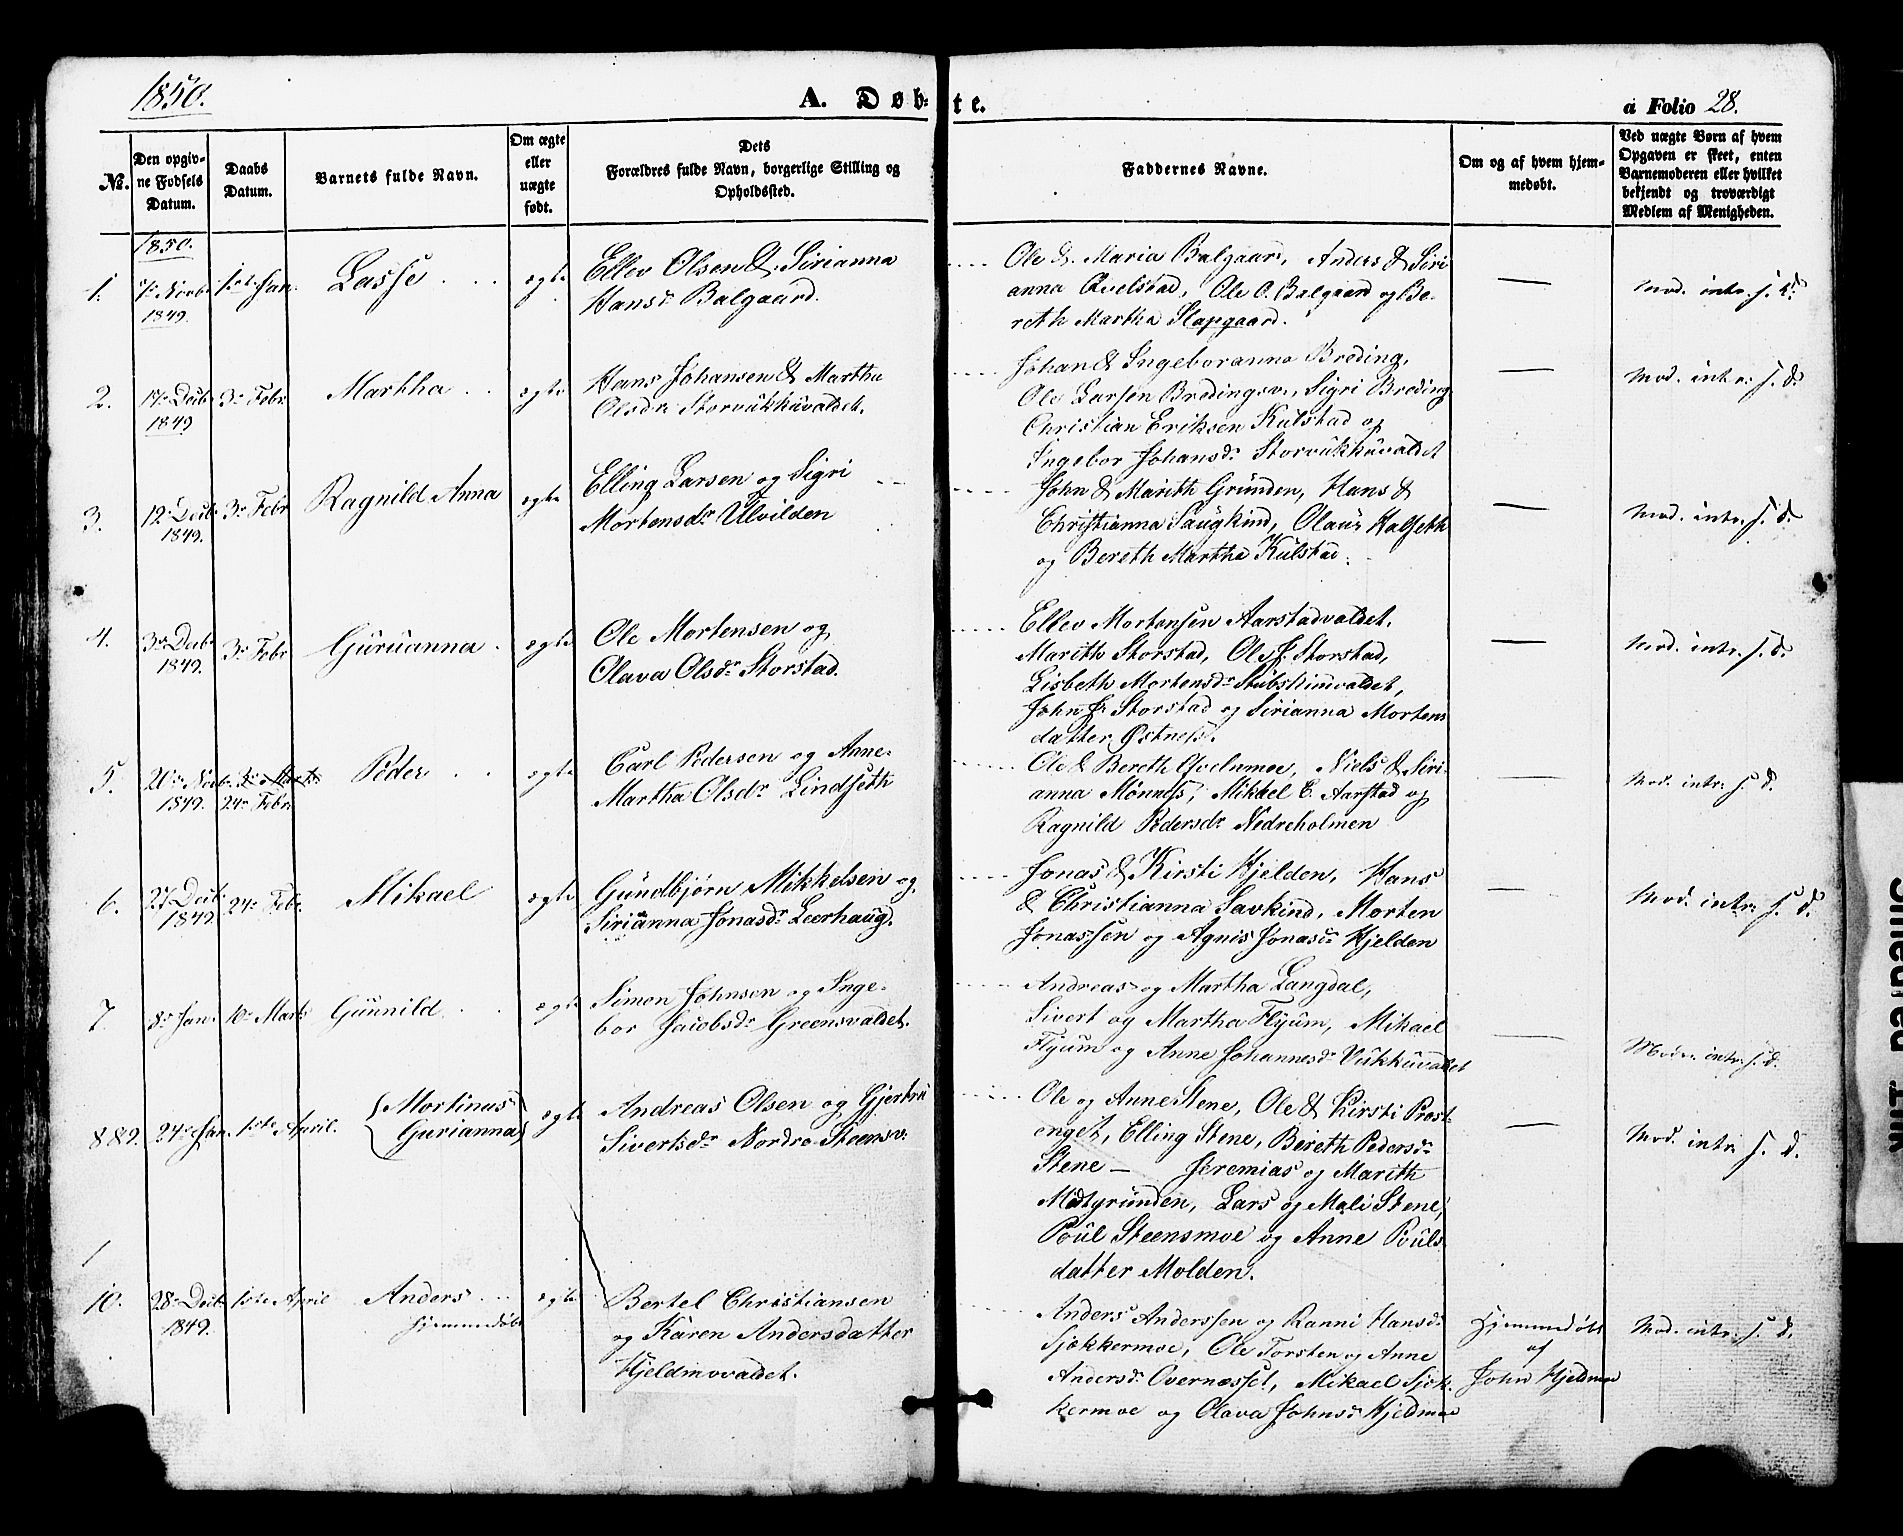 1850.
A. Døb-
te.
a Folio 28.
No.
Den opgiv-
ne Fødsels
Datum.
Daabs
Datum.
Barnets fulde Navn.
Om ægte
eller
uægte
født.
Dets
Forældres fulde Navn, borgerlige Stilling og
Opholdssted.
Faddernes Navne.
Om og af hvem hjem-
medøbt.
Ved uægte Børn af hvem
Opgaven er skeet, enten
Barnemoderen eller hvilket
bekjendt og troværdigt
Medlem af Menigheden.
1850.
1.
1849.
Jan.
Lasse
egte
Ellev Olsen & Sirianna
Hansdr Balgaard.
Ole & Maria Balgaard, Anders & Siri-
anna Qvelstad, Ole O. Balgaard og Be-
reth Martha Slapgaard.
—
Mod. intr. s. d.
2.
17de Decbr
1849
3de Febr.
Martha
egte
Hans Johansen & Martha
Olsdr Storvukkuvaldet.
Johan & Ingeboranna Breding,
Ole Larsen Bredingsv., Sigri Breding
Christian Eriksen Kulstad og
Ingebor Johansdr Storvukkuvaldet
—
Mod. intr. s. d.
3.
12te Decbr
1849.
3de Febr
Ragnild Anna
egte
Elling Larsen og Sigri
Mortensdr Ulvilden
John & Marith Grunden, Hans &
Christianna Saugkind, Olaus Halseth
og Bereth Martha Kulstad.
—
Mod. intr. s. d.
4.
3de Decbr
1849.
3de Febr
Guruanna
egte
Ole Mortensen og
Olava Olsdr Storstad.
Ellev Mortensen Aarstadvaldet,
Marith Storstad, Ole J. Storstad,
Lisbeth Mortensdr Stubskinvaldet,
John J. Storstad og Sirianna Mortens
datter Østness.
—
Mod. intr. s. d.
5.
20de Novbr
1849.
24de Febr.
Peder
egte
Carl Pedersen og Anne-
Martha Olsdr Lindseth
Ole & Bereth Qvelmoe, Niels & Siri-
anna Mønness, Mikael E. Aarstad og
Ragnild Pedersdr Nedreholmen
—
Mod. intr. s. d.
6.
27 Decbr
1849.
24de Febr.
Mikael
egte
Gundbjørn Mikkelsen og
Sirianna Jonasdr Leerhaug.
Jonas & Kirsti Hjelden, Hans
& Christianna Savkind, Morten
Jonassen og Agnis Jonasdr Hjelden
—
Mod. intr. s. d.
7.
8de Jan.
10de Marts
Gunnild
egte
Simon Johnsen og Inge-
bor Jacobsdr Greensvaldet.
Andreas og Martha Langdal,
Sivert og Martha Flyum, Mikael
Flyum og Anne Johannesdr Vukkuvaldet
—
Moder intr. s. d.
8 & 9.
24de Jan.
1ste April.
Mortinus
Gurianna
egte
Andreas Olsen og Gjertru
Sivertsdr Nordre Steensv.
Ole og Anne Stene, Ole & Kirsti Prest-
enget, Elling Stene, Bereth Pedersdr
Stene — Jeremias og Marith
Midtgrunden, Lars og Mali Stene,
Poul Steensmoe og Anne Pouls-
datter Molden.
—
Mod. intr. s. d.
10.
28de Decbr
1849.
1ste April
Anders
hjemmedøbt
egte
Bertel Christiansen
og Karen Andersdatter
Hjeldmovaldet.
Anders Anderssen og Ranni Hansdr
Sjøkkermoe, Ole Torsten og Anne
Andersdr Overnæsset, Mikael Sjøk-
kermoe og Olava Johnsdr Hjeldmoe
Hjemmedøbt
af
John Hjeldmoe
Mod. intr. s. d.